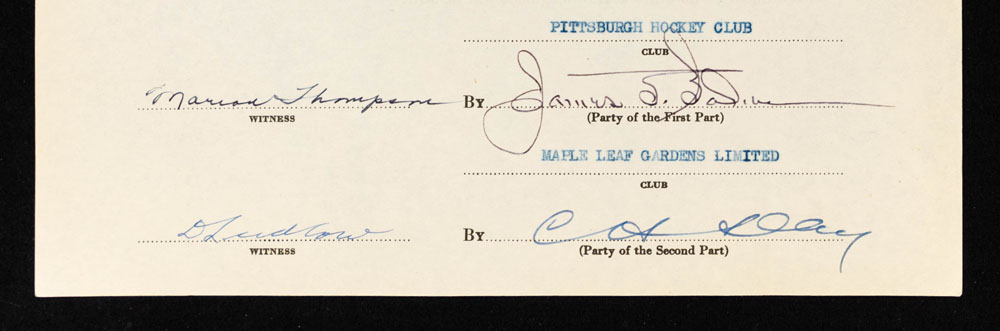 PITTSBURGH HOCKEY CLUB
CLUB
Marion Thompson By James T.
WITNESS (Party of the First Part)
MAPLE LEAF GARDENS LIMITED
CLUB
D Ludlow By C H Day
WITNESS (Party of the Second Part)